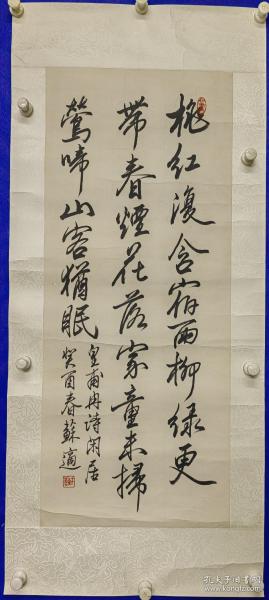 桃红復含宿雨柳绿更
带春煙花落家童未掃
鶯啼山客猶眠
皇甫冉诗闲居
癸酉春蘇適
孔夫子旧书网